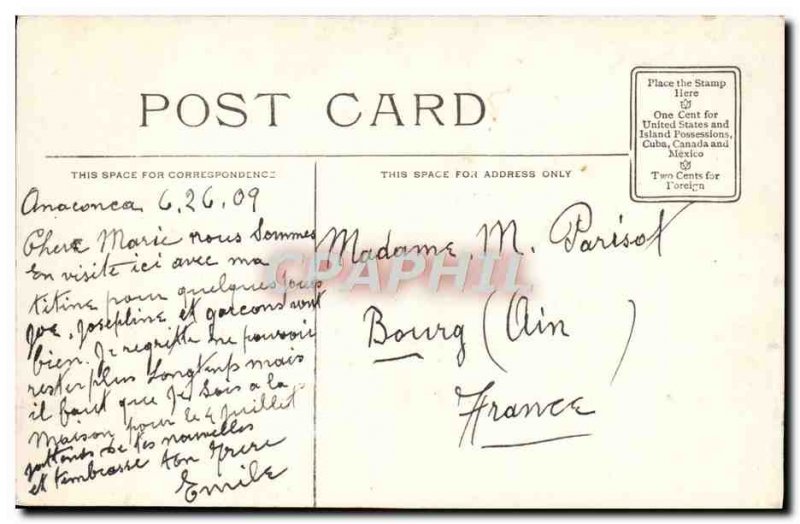 POST CARD
Place the Stamp
Here
One Cent for
United States and
Island Possessions,
Cuba, Canada and
Mexico
Two Cents for
Foreign
THIS SPACE FOR CORRESPONDENCE
THIS SPACE FOR ADDRESS ONLY
Anaconca 6.26.09
Chere Marie nous sommes
en visite ici avec ma
titine pour quelques jours
Joe, Josephine et garcons vont
bien. Je regritte ne pouvoir
rester plus longtemps mais
il faut que je sois a la
Maison pour le 4 Juillet
jattends de tes nouvelles
et tembrasse ton frere
Emile
Madame M. Parisot
Bourg (Ain)
France
CPAPHIL